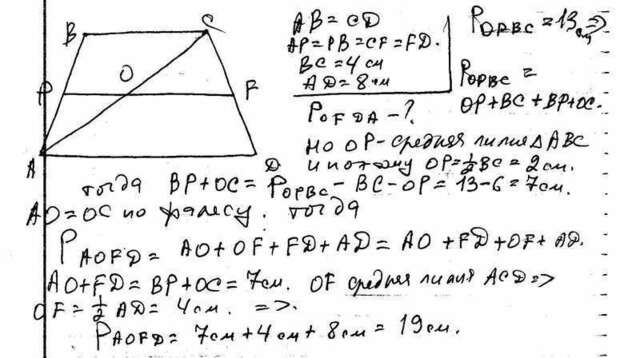 B C
O
P F
A D
AB = CD
AP = PB = CF = FD.
BC = 4 см
AD = 8 см
P_OFDA - ?
P_OPBC = 13 см =>
P_OPBC =
OP + BC + BP + OC.
но OP - средняя линия △ ABC
и потому OP = 1/2 BC = 2 см.
тогда BP + OC = P_OPBC - BC - OP = 13 - 6 = 7 см.
AO = OC по фалесу. тогда
P_AOFD = AO + OF + FD + AD = AO + FD + OF + AD.
AO + FD = BP + OC = 7 см. OF средняя линия ACD =>
OF = 1/2 AD = 4 см. =>.
P_AOFD = 7 см + 4 см + 8 см = 19 см.